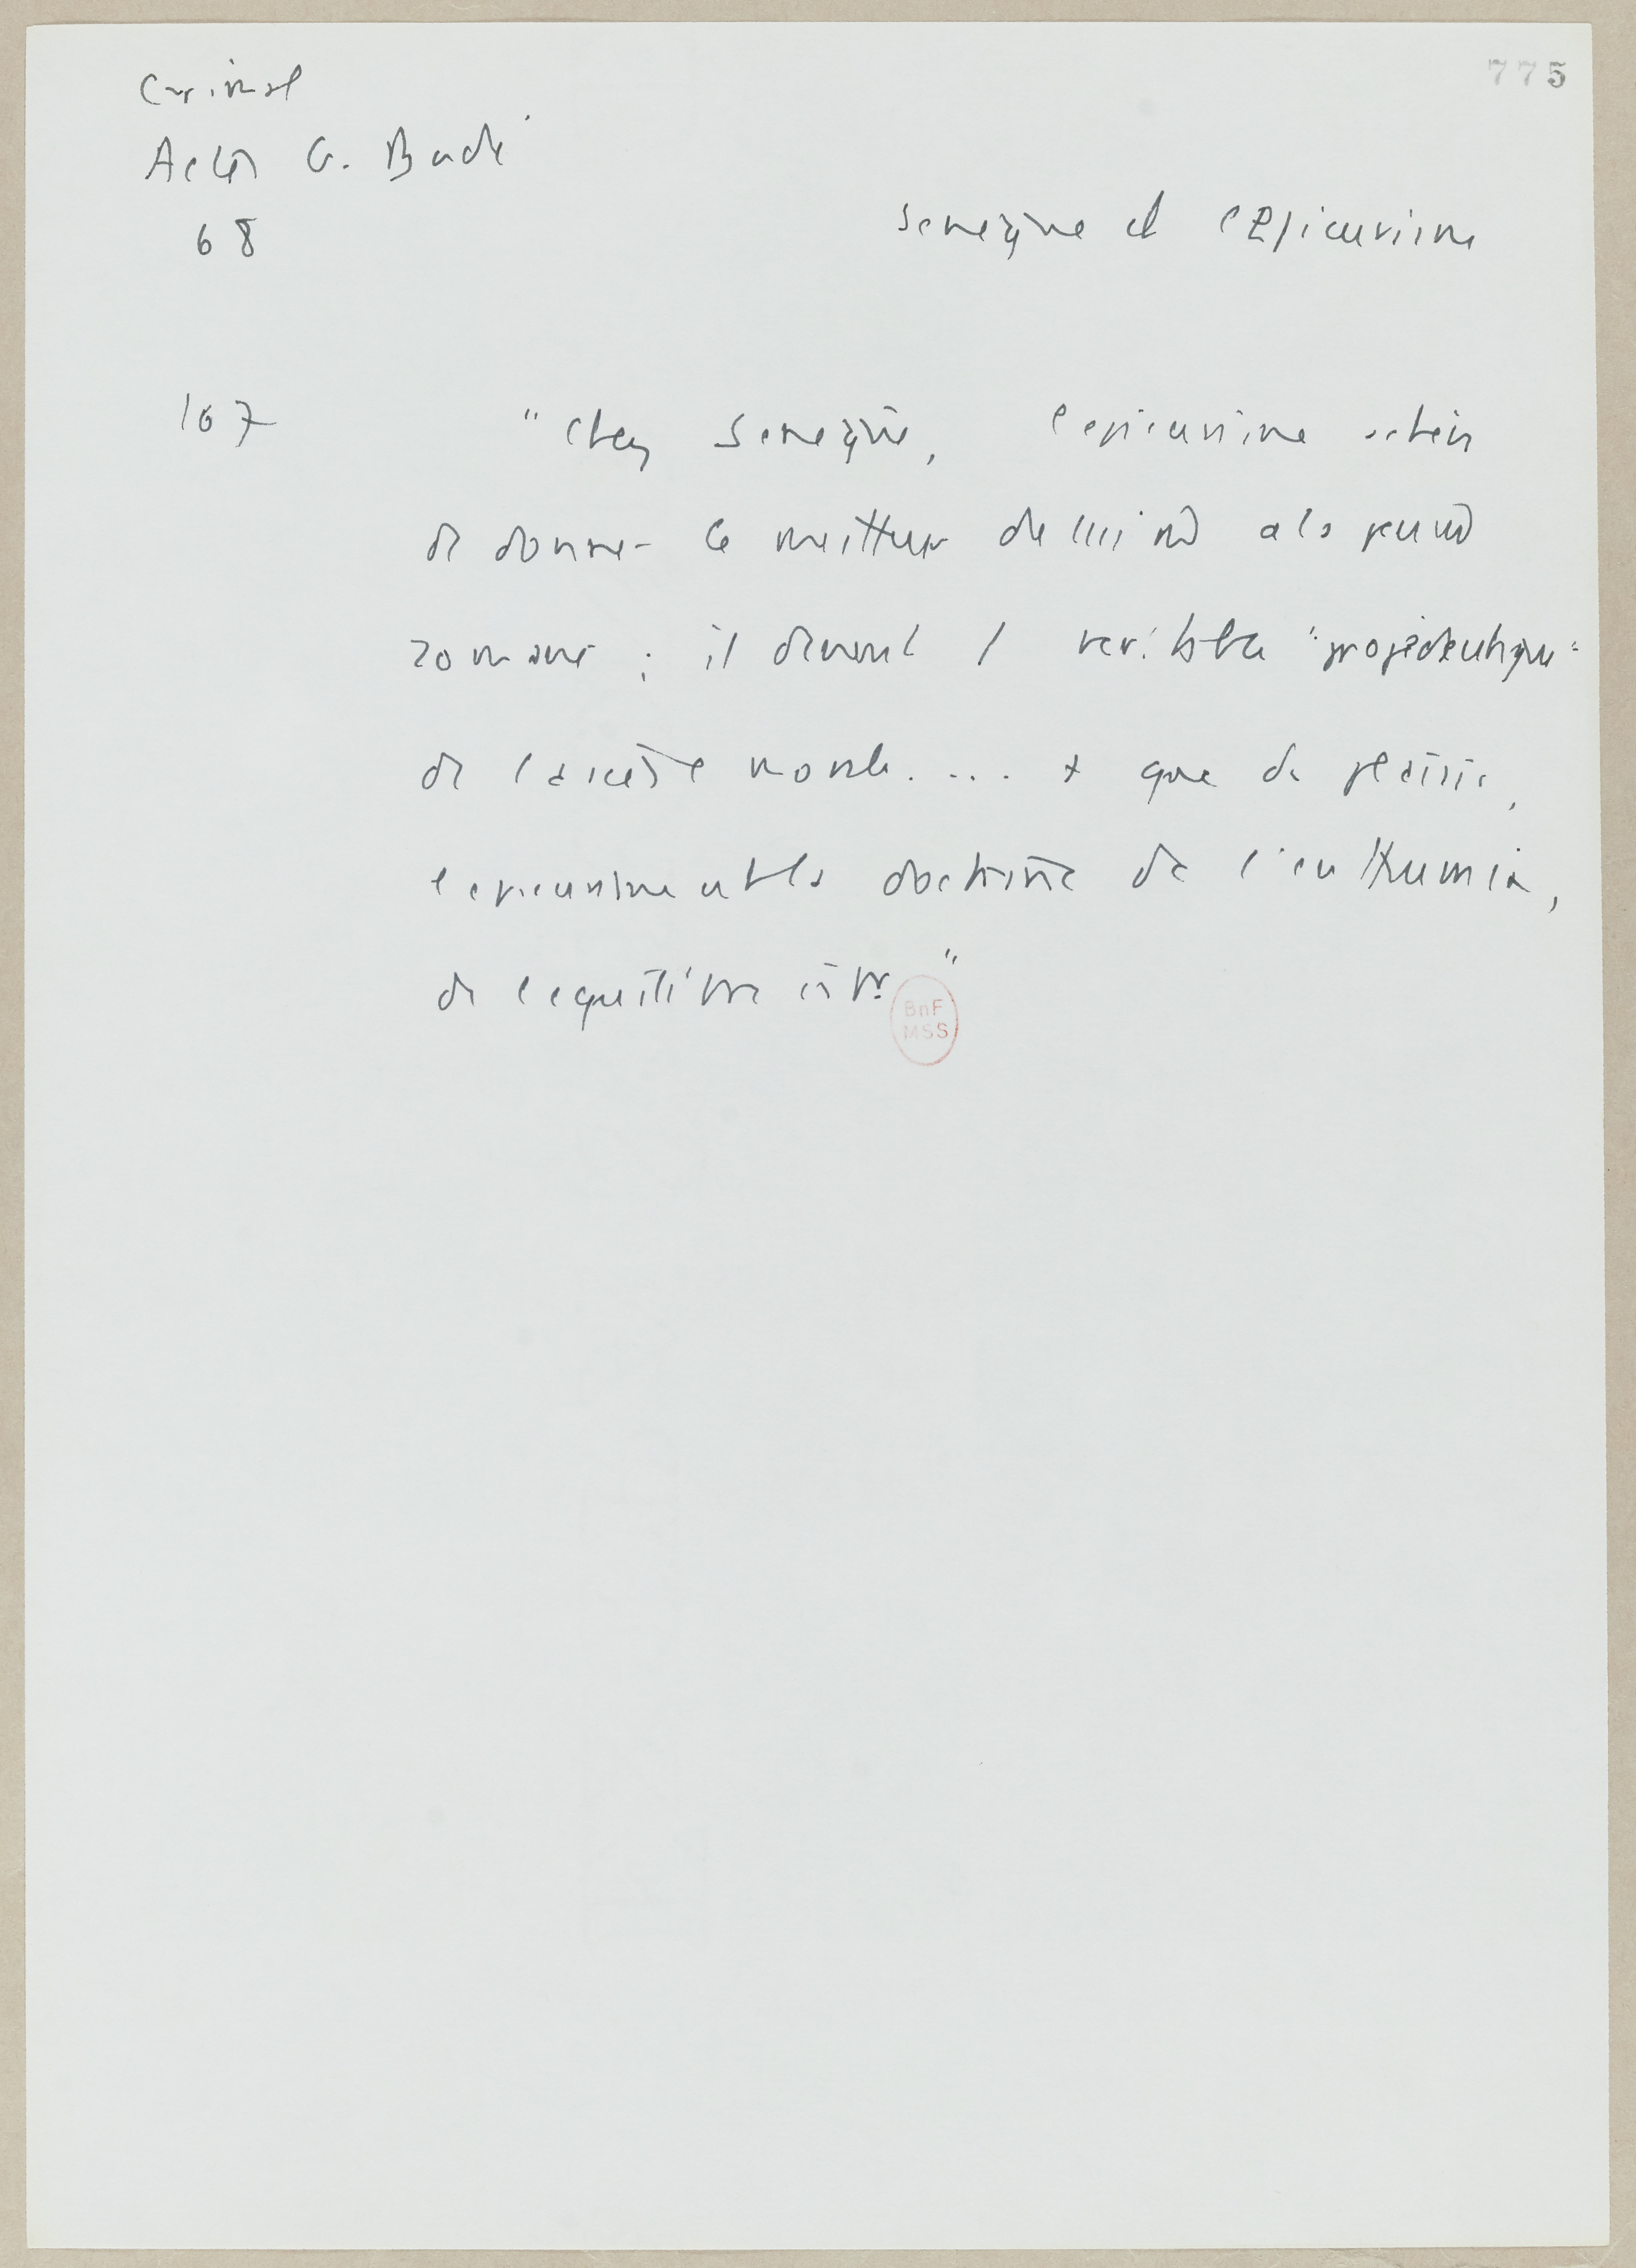 775
Grimal
Actes G. Budé
68
Sénèque et l'épicurisme
107
"Chez Sénèque, l'epicurisme achève
de donner le meilleur de lui même à la pensée
romaine ; il devient 1 véritable "propédeutique"
de l'ascèse morale. ... + que du plaisir,
l'epicurisme est la doctrine de l'euthumia,
de l'equilibre intr."
BnF
MSS